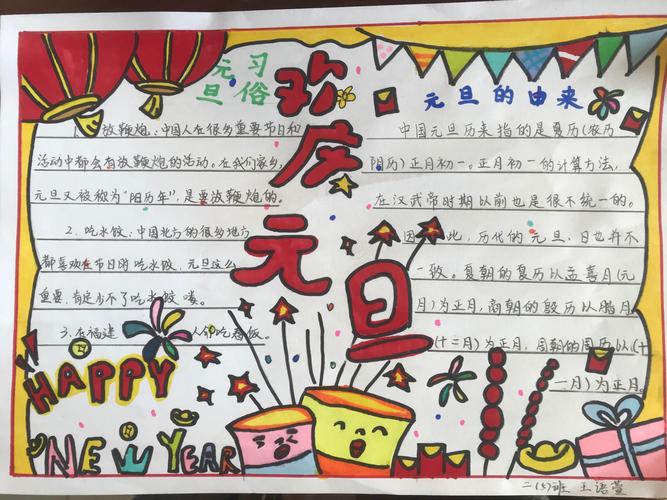 欢庆元旦
元旦习俗
1. 放鞭炮:中国人在很多重要节日和
活动中都会有放鞭炮的活动。在我们家乡,
元旦又被称为“阳历年”,是要放鞭炮的。
2. 吃水饺,中国北方的很多地方
都喜欢在节日时吃水饺,元旦这么
重要,肯定少不了吃水饺喽。
3. 在福建人们吃春饭。
HAPPY
NEW YEAR
元旦的由来
中国元旦历来指的是夏历(农历
阴历)正月初一。正月初一的计算方法,
在汉武帝时期以前也是很不统一的。
因此,历代的元旦、日也并不
一致。夏朝的夏历以孟喜月(元
月)为正月,商朝的殷历以腊月
(十二月)为正月,周朝的周历以(十
一月)为正月。
二(5)班 王语萱